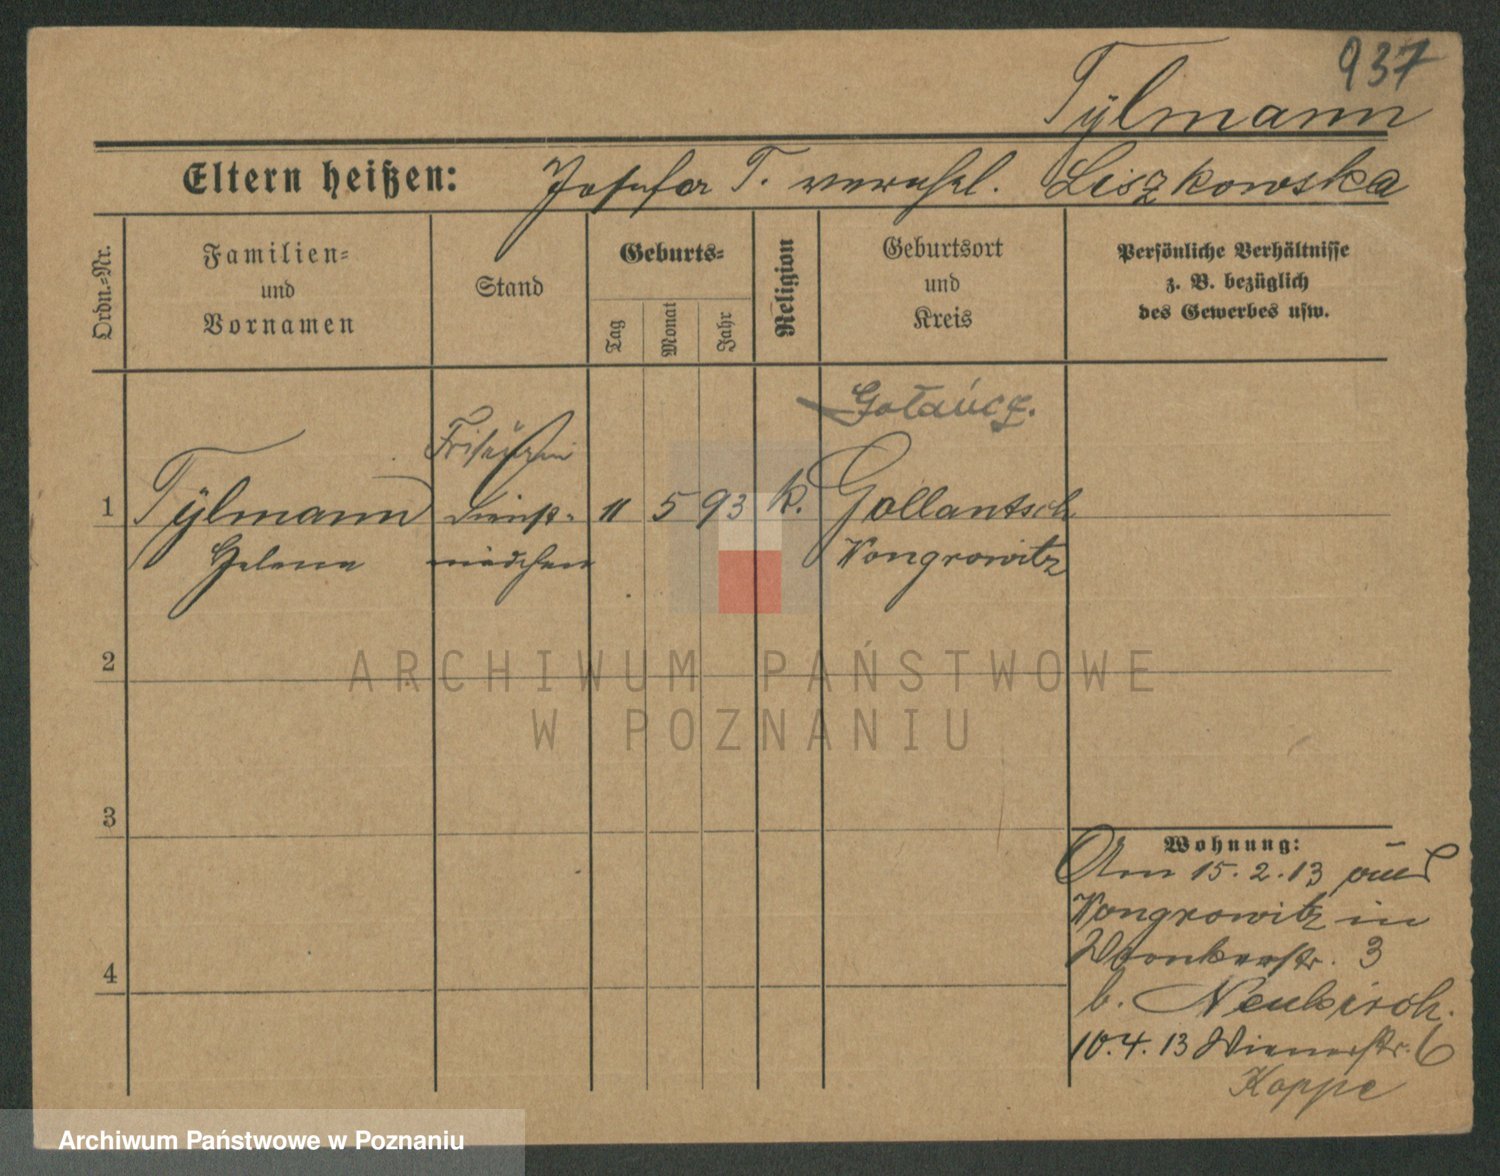 937
Tÿlmann
Eltern heißen: Josefa T. verehel. Liszkowska
Ordn.=Nr.
Familien=
und
Vornamen
Stand
Geburts=
Tag
Monat
Jahr
Religion
Geburtsort
und
Kreis
Persönliche Verhältnisse
z. B. bezüglich
des Gewerbes usw.
Gołańcz.
Friseuzin
1 Tÿlmann Dienst- 11 5 93 k. Gollantsch
Helena mädchen Wongrowitz
2
3
4
Wohnung:
Am 15.2.13 aus
Wongrowitz in
Wronkerstr. 3
b. Neukirch.
10.4.13 Wienerstr. 6
Koppe
ARCHIWUM PAŃSTWOWE
W POZNANIU
Archiwum Państwowe w Poznaniu